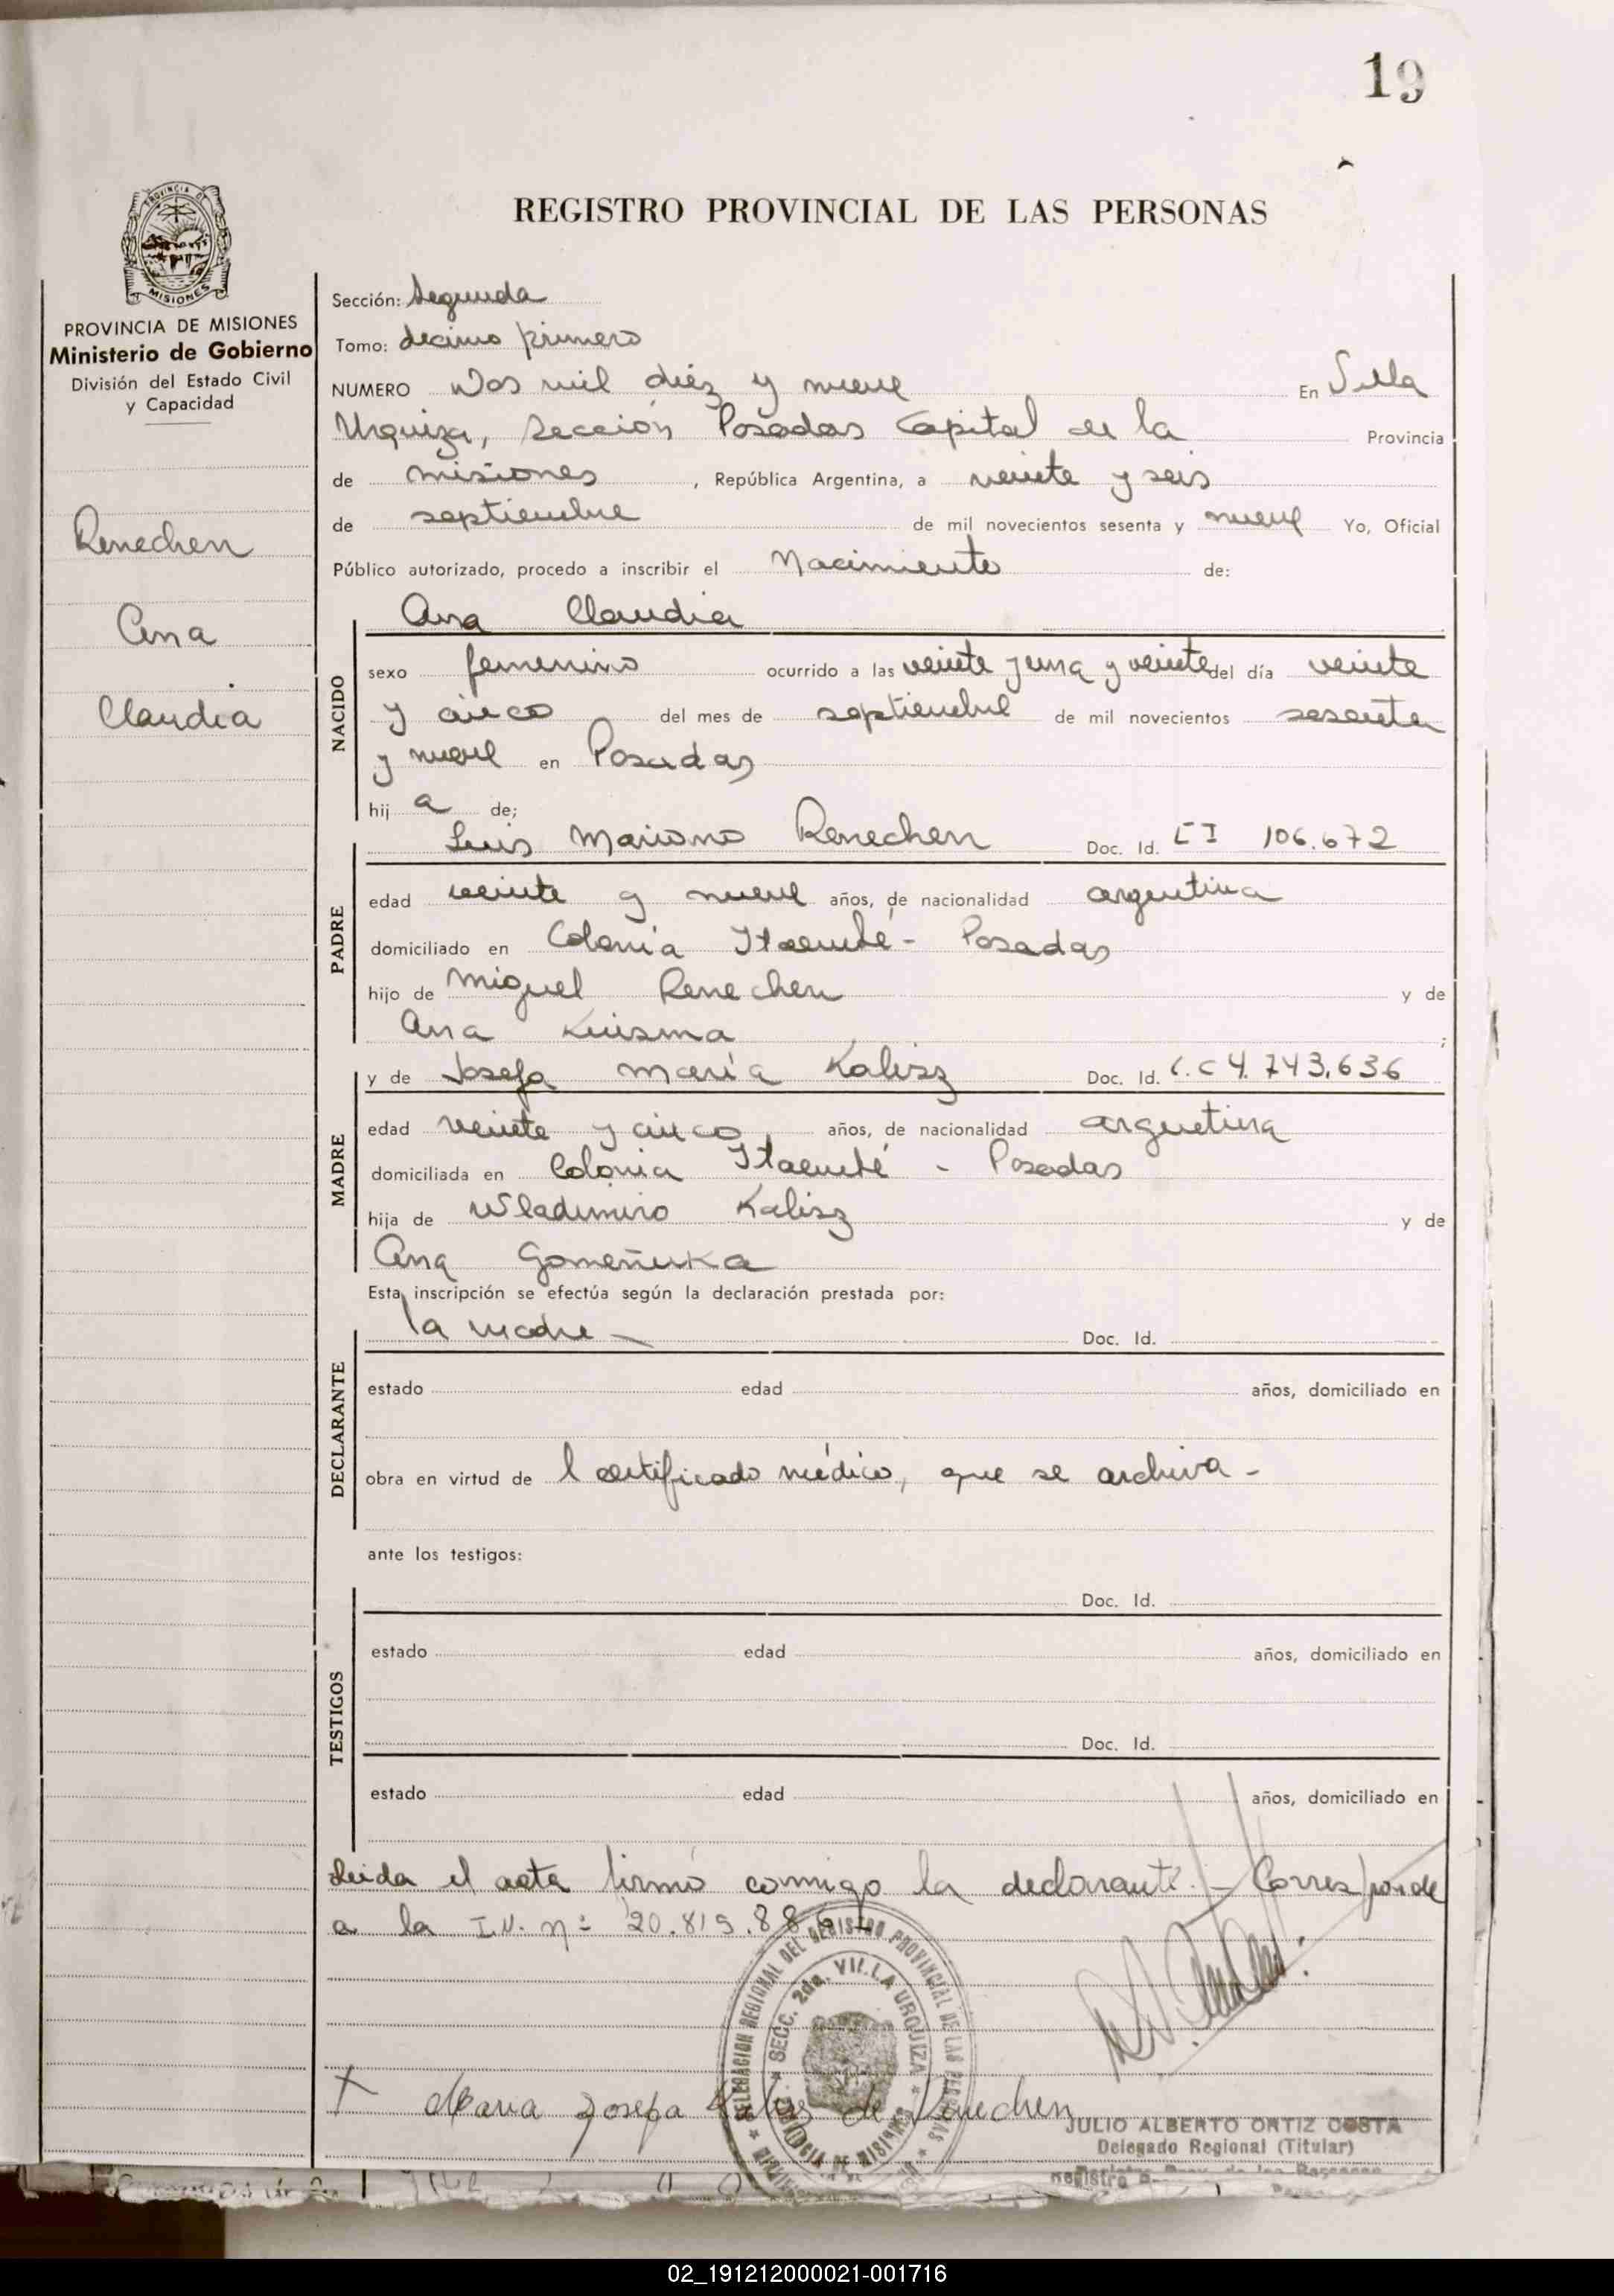 19
PROVINCIA DE MISIONES
REGISTRO PROVINCIAL DE LAS PERSONAS
PROVINCIA DE MISIONES
Ministerio de Gobierno
División del Estado Civil
y Capacidad
Renechen
Ana
Claudia
Sección: Segunda
Tomo: decimo primero
NUMERO Dos mil diez y nueve En Villa
Urquiza, Sección Posadas Capital de la Provincia
de misiones, República Argentina, a veinte y seis
de septiembre de mil novecientos sesenta y nueve Yo, Oficial
Público autorizado, procedo a inscribir el Nacimiento de:
NACIDO
Ana Claudia
sexo femenino ocurrido a las veinte y una y veinte del día veinte
y cinco del mes de septiembre de mil novecientos sesenta
y nueve en Posadas
hij a de;
PADRE
Luis Mariano Renechen Doc. Id. CI 106.672
edad veinte y nueve años, de nacionalidad argentina
domiciliado en Colonia Itaembé - Posadas
hijo de Miguel Renechen y de
Ana Kuisma;
MADRE
y de Josefa María Kalisz Doc. Id. L.C 4.743.636
edad veinte y cinco, años, de nacionalidad argentina
domiciliada en Colonia Itaembé - Posadas
hija de Wladimiro Kalisz y de
Ana Gomeñuka
Esta inscripción se efectúa según la declaración prestada por:
DECLARANTE
la madre - Doc. Id.
estado edad años, domiciliado en
obra en virtud de l certificado médico, que se archiva -
ante los testigos:
TESTIGOS
Doc. Id.
estado edad años, domiciliado en
Doc. Id.
estado edad años, domiciliado en
Leida el acta firmó comigo la declarante. - Corresponde
a la I.N. nº 20.819.886
DELEGACION REGIONAL DEL REGISTRO PROVINCIAL DE LAS PERSONAS
SECC. 2da. VILLA URQUIZA
PROVINCIA DE MISIONES
X Maria Josefa Kalisz de Renechen
JULIO ALBERTO ORTIZ COSTA
Delegado Regional (Titular)
02_191212000021-001716